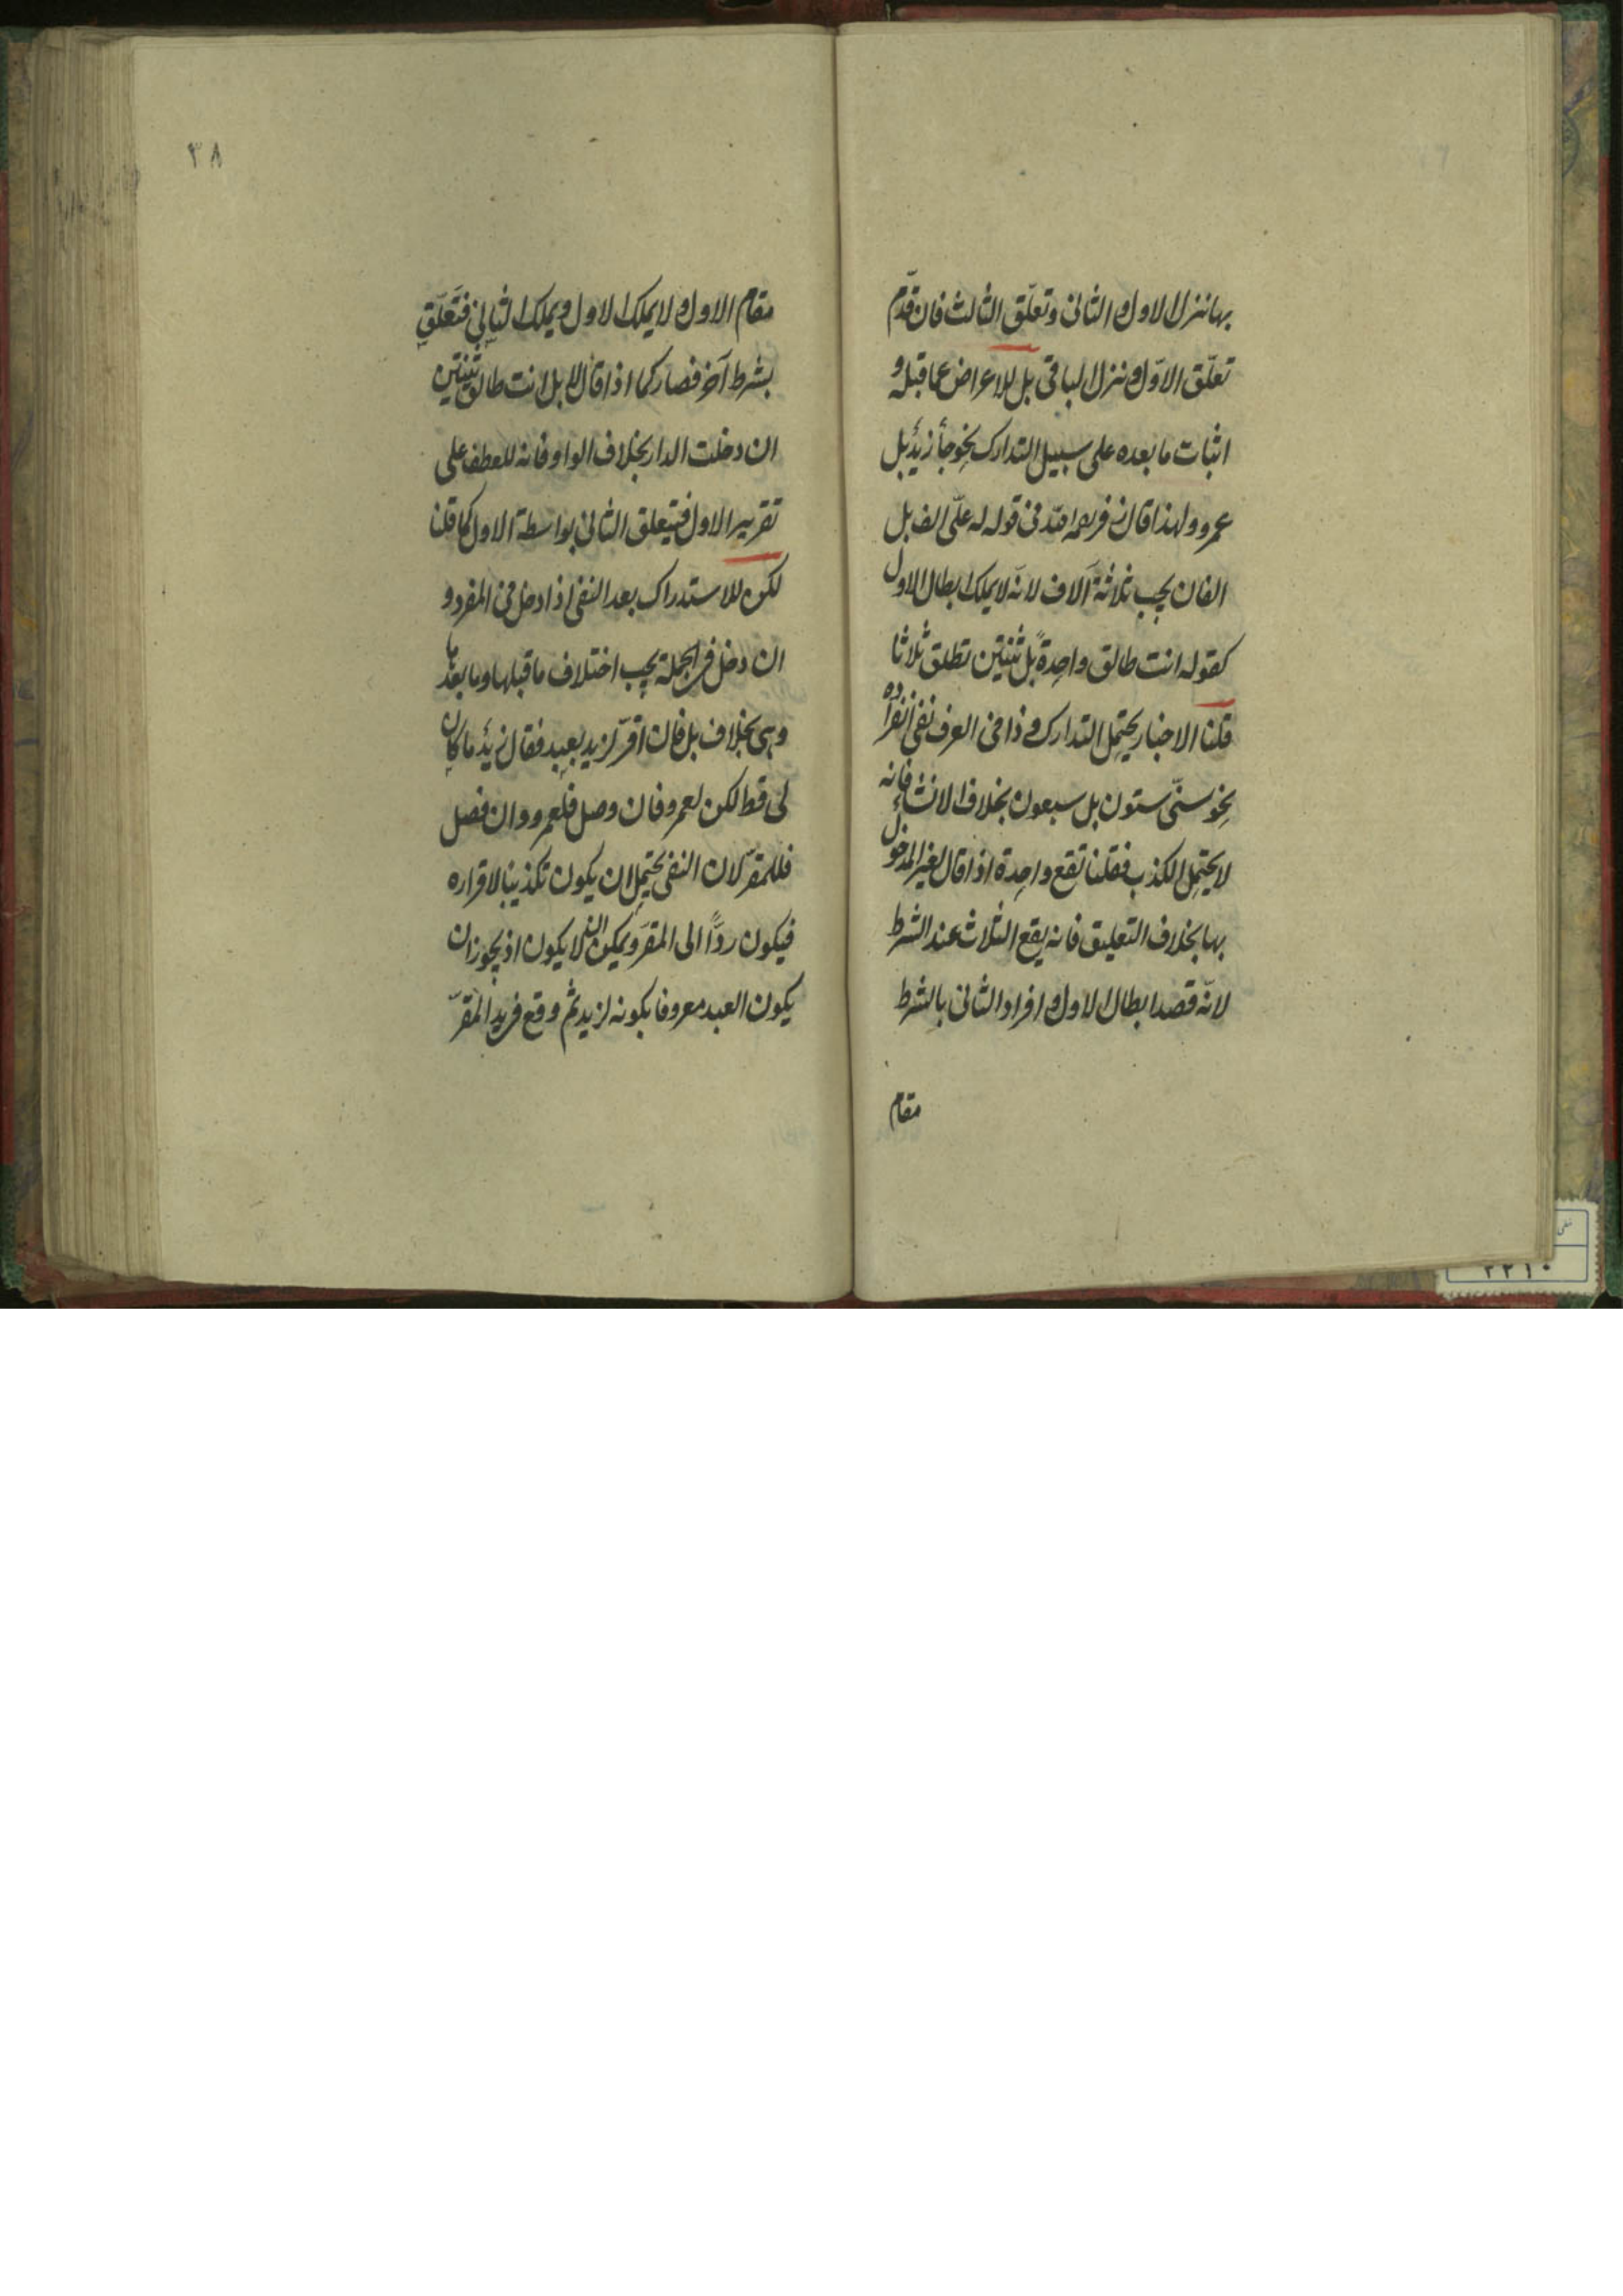 بها نزل الاول والثانى وتعلّق الثالث فان قدّم
تعلّق الاوّل ونزل الباقى بل للاعراض عما قبله و
اثبات ما بعده على سبيل التدارك نحو جأ زيدٌ بل
عمرو ولهذا قال زفر رحمه الله فى قوله له علىّ الف بل
الفان يجب ثلاثة آلاف لانّه لا يملك ابطال الاول
كقوله انت طالق واحِدةً بل ثنتين تطلق ثلاثا
قلنا الاخبار يحتمل التدارك و ذا فى العرف نفى انفراده
نحو سنّى ستون بل سبعون بخلاف الانشاء فانه
لا يحتمل الكذب فقلنا تقع واحِدة اذا قال لغير المدخول
بها بخلاف التعليق فانه يقع الثلاث عند الشرط
لانّه قصد ابطال الاول وافراد الثانى بالشرط
مقام
٣٨
مقام الاول ولا يملك الاول ويملك الثانى فتعلّق
بشرط آخر فصار كما اذا قال لا بل انت طالق ثنتين
ان دخلت الدار بخلاف الواو فانه للعطف على
تقرير الاول فيتعلق الثانى بواسطة الاول كما قلنا
لكن للاستدراك بعد النفى اذا دخل فى المفرد و
ان دخل فى الجملة يجب اختلاف ما قبلها وما بعدها
وهى بخلاف بل فان اقرّ لزيد بعبد فقال زيدٌ ما كان
لى قط لكن لعمرو فان وصل فلعمرو وان فصل
فللمقرّ لان النفى يحتمل ان يكون تكذيبا لاقراره
فيكون ردًّا الى المقرّ ويمكن ان لا يكون اذ يجوز ان
يكون العبد معروفا بكونه لزيد ثم وقع فى يد المقرّ
٢٢١٠